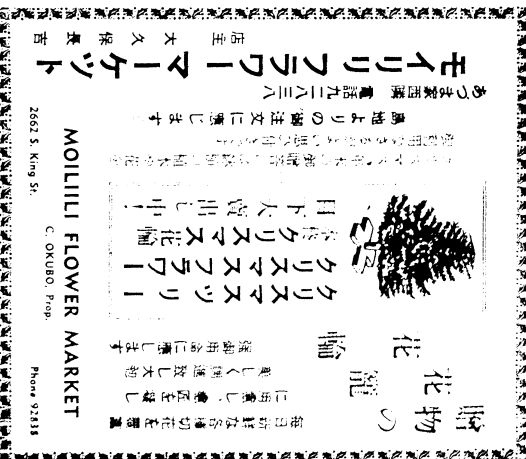 贈物の
花籠
花輪
毎日新鮮な各種切花を豊富
に用意し、
美しく調進致し大勉
強御用命に應じます
クリスマスツリー
クリスマスフラワー
クリスマス花輪
目下大賣出し中！
島地よりの御注文に應じます
あづま家西隣 電話九二八三八
モイリリフラワーマーケット
店主 大久保長吉
MOILIILI FLOWER MARKET
C. OKUBO, Prop.
2662 S. King St. Phone 92838